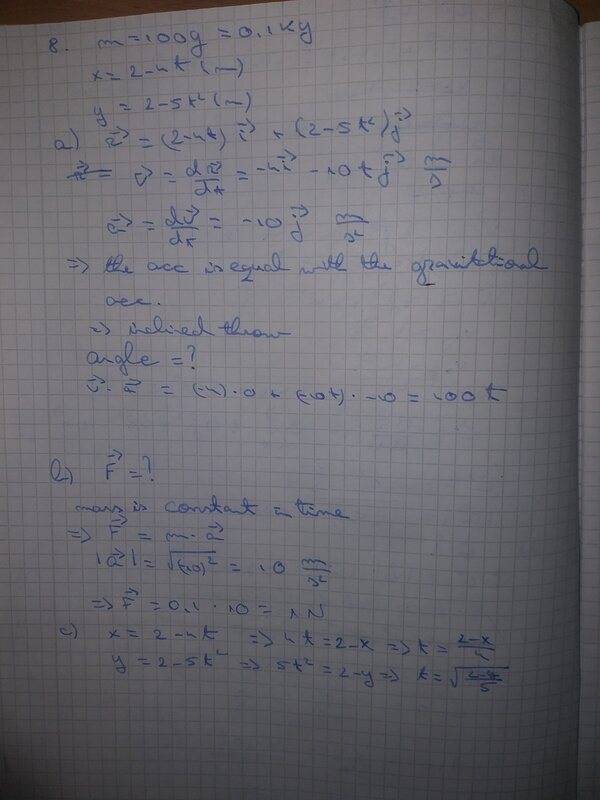 8. m = 100g = 0,1 kg
x = 2 - 4t (m)
y = 2 - 5t² (m)
a) r⃗ = (2-4t) i⃗ + (2-5t²) j⃗
v⃗ = dr⃗/dt = -4i⃗ - 10t j⃗ m/s
a⃗ = dv⃗/dt = -10 j⃗ m/s²
=> the acc is equal with the gravitational
acc.
=> inclined throw
angle = ?
v⃗ · a⃗ = (-4)·0 + (-10t)·-10 = 100 t
b) F⃗ = ?
mass is constant in time
=> F⃗ = m · a⃗
|a⃗| = √(-10)² = 10 m/s²
=> F⃗ = 0,1 · 10 = 1 N
c) x = 2 - 4t => 4t = 2 - x => t = (2-x)/4
y = 2 - 5t² => 5t² = 2 - y => t = √((2-y)/5)